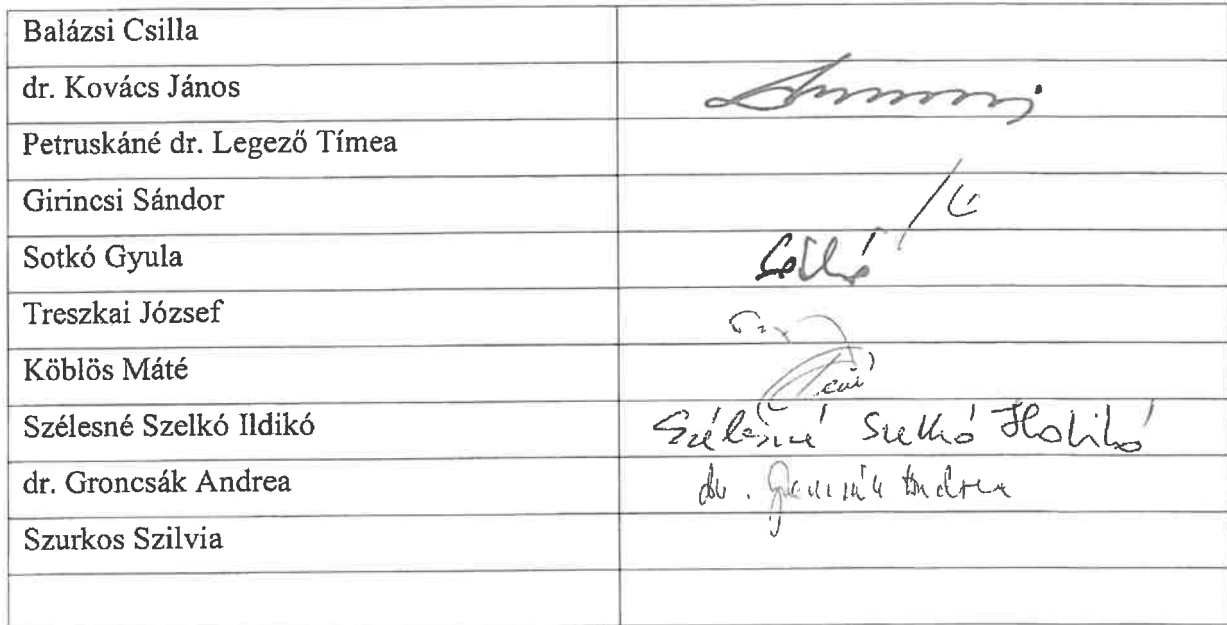 Balázsi Csilla
dr. Kovács János
Petruskáné dr. Legező Tímea
Girincsi Sándor
Sotkó Gyula Sotkó
Treszkai József
Köblös Máté
Szélesné Szelkó Ildikó Szélesné Szelkó Ildikó
dr. Groncsák Andrea dr. Groncsák Andrea
Szurkos Szilvia